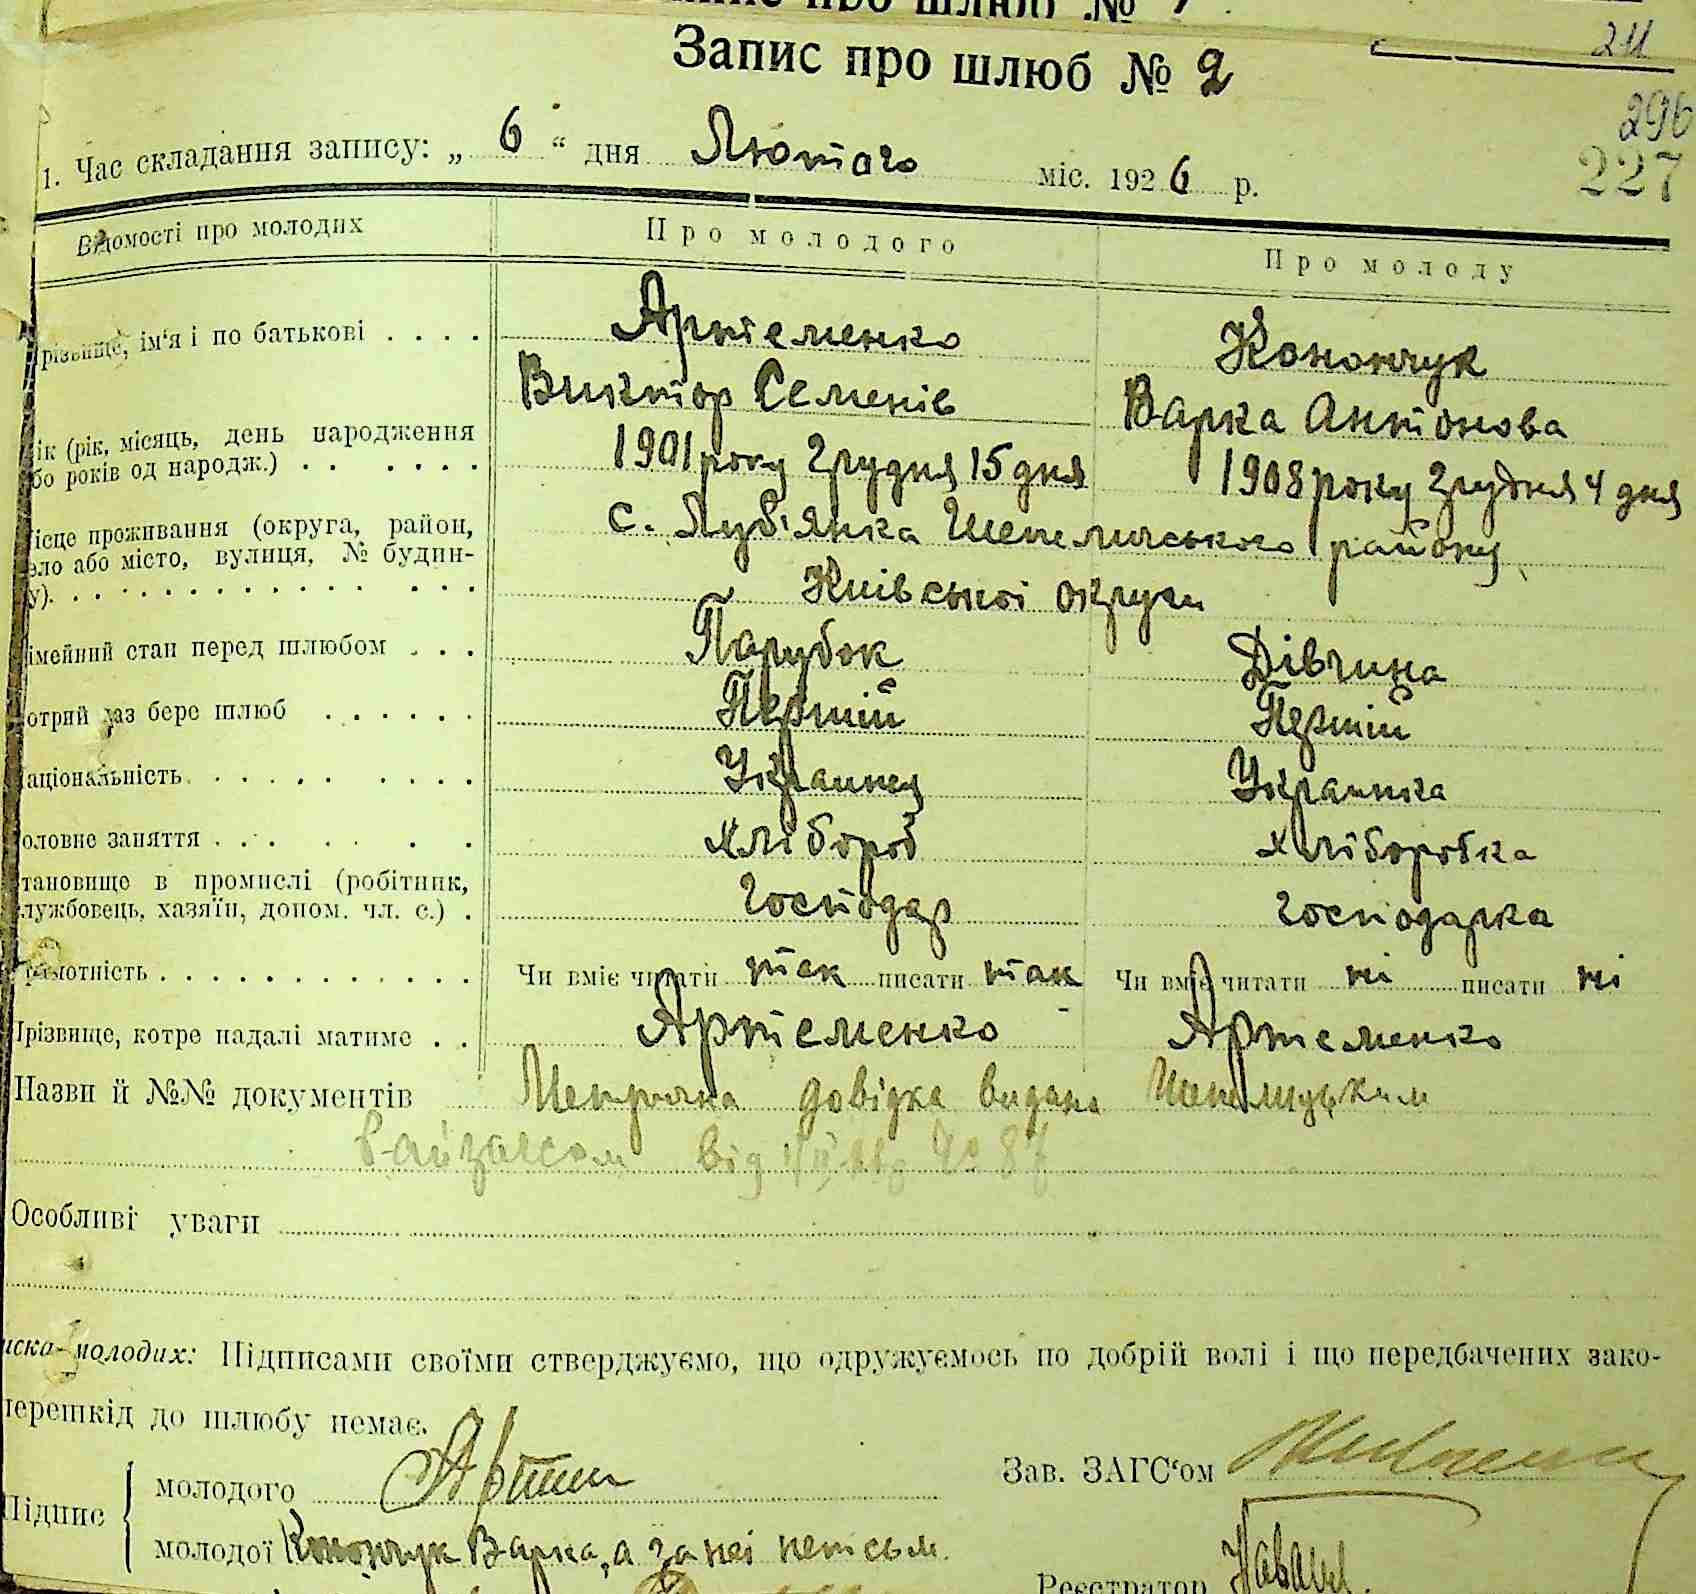 Запис про шлюб № 2
211
296
227
1. Час складання запису: „ 6 “ дня Лютого міс. 1926 р.
Відомості про молодих Про молодого Про молоду
різвище, ім'я і по батькові . . . . Артеменко Конончук
Виктор Семенів Варка Антонова
ік (рік, місяць, день народження 1901 року Грудня 15 дня 1908 року Грудня 4 дня
бо років од народж.) . . . . . .
ісце проживання (округа, район, с. Луб'янка Шепеличського району
ело або місто, вулиця, № будин-
у). . . . . . . . . . . . . . . Київської округи
імейний стан перед шлюбом . . . Парубок Дівчина
отрий раз бере шлюб . . . . . . Перший Перший
аціональність . . . . . . . . . Украинец Украинка
оловне заняття . . . . . . хлібороб хліборобка
тановище в промислі (робітник,
лужбовець, хазяїн, допом. чл. с.) . Господар господарка
рамотність . . . . . . . . . . . . Чи вміє читати так писати так Чи вміє читати ні писати ні
Прізвище, котре надалі матиме . . Артеменко Артеменко
Назви й №№ документів Метрична довідка видана Шепелицьким
Райзагсом від № 87
Особливі уваги
иска молодих: Підписами своїми стверджуємо, що одружуємось по добрій волі і що передбачених зако-
перешкід до шлюбу немає.
Зав. ЗАГС'ом
Підпис молодого Артем
молодої Конончук Варка, а за неї неписьм.
Реєстратор